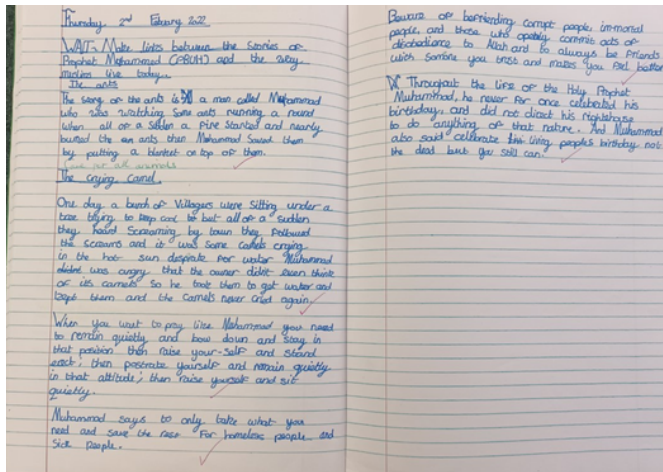 Thursday 2nd Febuary 2022
WALT- Make links between the stories of
Prophet Mohammed (PBUH) and the way
muslims live today.
The ants
The story of the ants is a man called Muhammad
who was watching some ants running a round
when all of a sudden a fire started and nearly
burned the ants then Mohammad saved them
by putting a blanket on top of them.
Care for all animals
The crying camel.
One day a bunch of villagers were sitting under a
tree trying to keep cool but all of a sudden
they heard screaming by town they followed
the screams and it was some camels crying
in the hot sun desprate for water Muhammad
was angry that the owner didnt even think
of its camels so he took them to get water and
kept them and the camels never cried again.
When you want to pray like Mohammad you need
to remain quietly and bow down and stay in
that position then raise your-self and stand
erect; then postrate yourself and remain quietly
in that attitude; then raise yourself and sit
quietly.
Muhammad says to only take what you
need and save the rest for homeless people and
sick people.
Beware of befriending corrupt people, immoral
people, and those who openly commit acts of
disobedience to Allah and to always be friends
with somone you trust and makes you feel better
Throughout the life of the Holy Prophet
Muhammad, he never for once celebrated his
birthday, and did not direct his
to do anything of that nature. And Muhammad
also said celebrate living peoples birthday not
the dead but you still can.